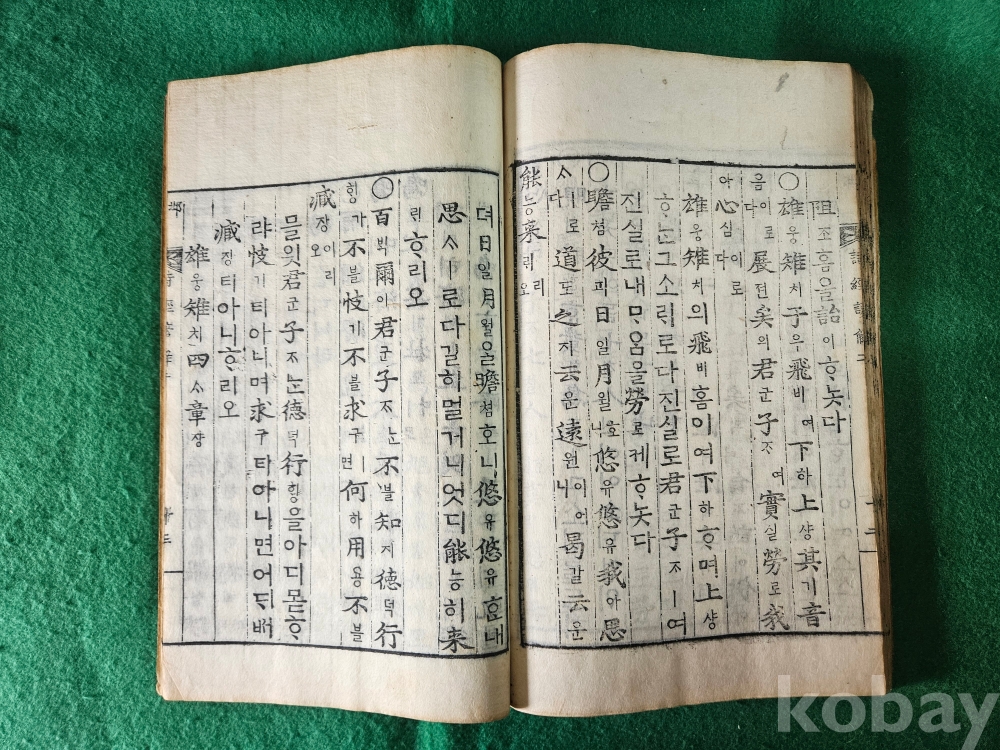 詩經諺解二 十二
阻조홈을詒이ᄒᆞ놋다
○雄웅雉치于우飛비여下하上샹其기音
음이로다展뎐矣의君군子ᄌᆞ여實실勞로我
아心심이로다
雄웅雉치의飛비홈이여下하ᄒᆞ며上샹
ᄒᆞᄂᆞᆫ그소ᄅᆡ로다진실로君군子ᄌᆞㅣ여
진실로내ᄆᆞᄋᆞᆷ을勞로케ᄒᆞ놋다
○瞻쳠彼피日일月월호니悠유悠유我아思
ᄉᆞㅣ로다道도之지云운遠원이어니曷갈云운
能능来ᄅᆡ리오
뎌日일月월을瞻쳠호니悠유悠유ᄒᆞᆫ내
思ᄉᆞㅣ로다길히멀거니엇디能능히来
ᄅᆡᆫᄒᆞ리오
○百ᄇᆡᆨ爾이君군子ᄌᆞᄂᆞᆫ不블知지德덕行
ᄒᆡᆼ가不블忮기不블求구ㅣ면何하用용不블
臧장이리오
믈읫君군子ᄌᆞᄂᆞᆫ德덕行ᄒᆡᆼ을아디몯ᄒᆞ
랴忮기티아니며求구티아니면어ᄃᆡᄡᅥ
臧장티아니ᄒᆞ리오
雄웅雉치四ᄉᆞ章쟝
kobay